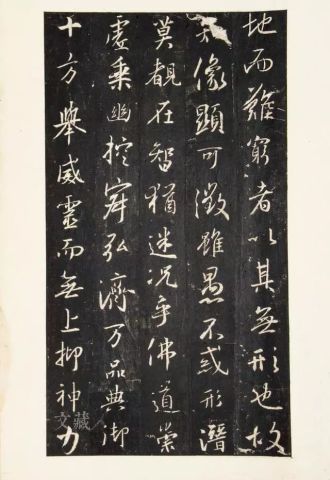 地而難窮者以其無形也故
像顯可徵雖愚不惑形潛
莫覩在智猶迷況乎佛道崇
虛乘幽控寂弘濟万品典御
十方舉威靈而無上抑神力
文藏